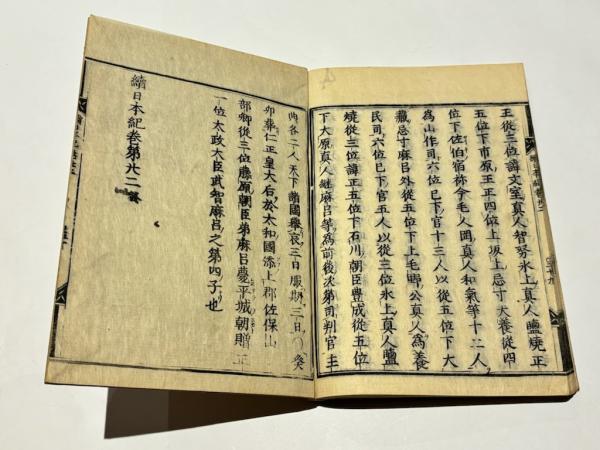 王從三位諱文室真人智努氷上真人鹽燒正
五位下市原王正四位上坂上忌寸犬養從四
位下佐伯宿祢今毛人岡真人和氣等十二人
為山作司六位已下官十三人以從五位下大
藏忌寸麻呂外從五位下上毛野公真人為養
民司六位已下官五人以從三位氷上真人鹽
燒從三位諱正五位下石川朝臣豊成從五位
下大原真人継麻呂等為前後次第司判官主
典各二人天下諸國舉哀三日服期三日〇癸
卯葬仁正皇大后於太和國添上郡佐保山
部卿從三位藤原朝臣弟麻呂薨平城朝贈正
一位太政大臣武智麻呂之第四子也
續日本紀卷第廿二